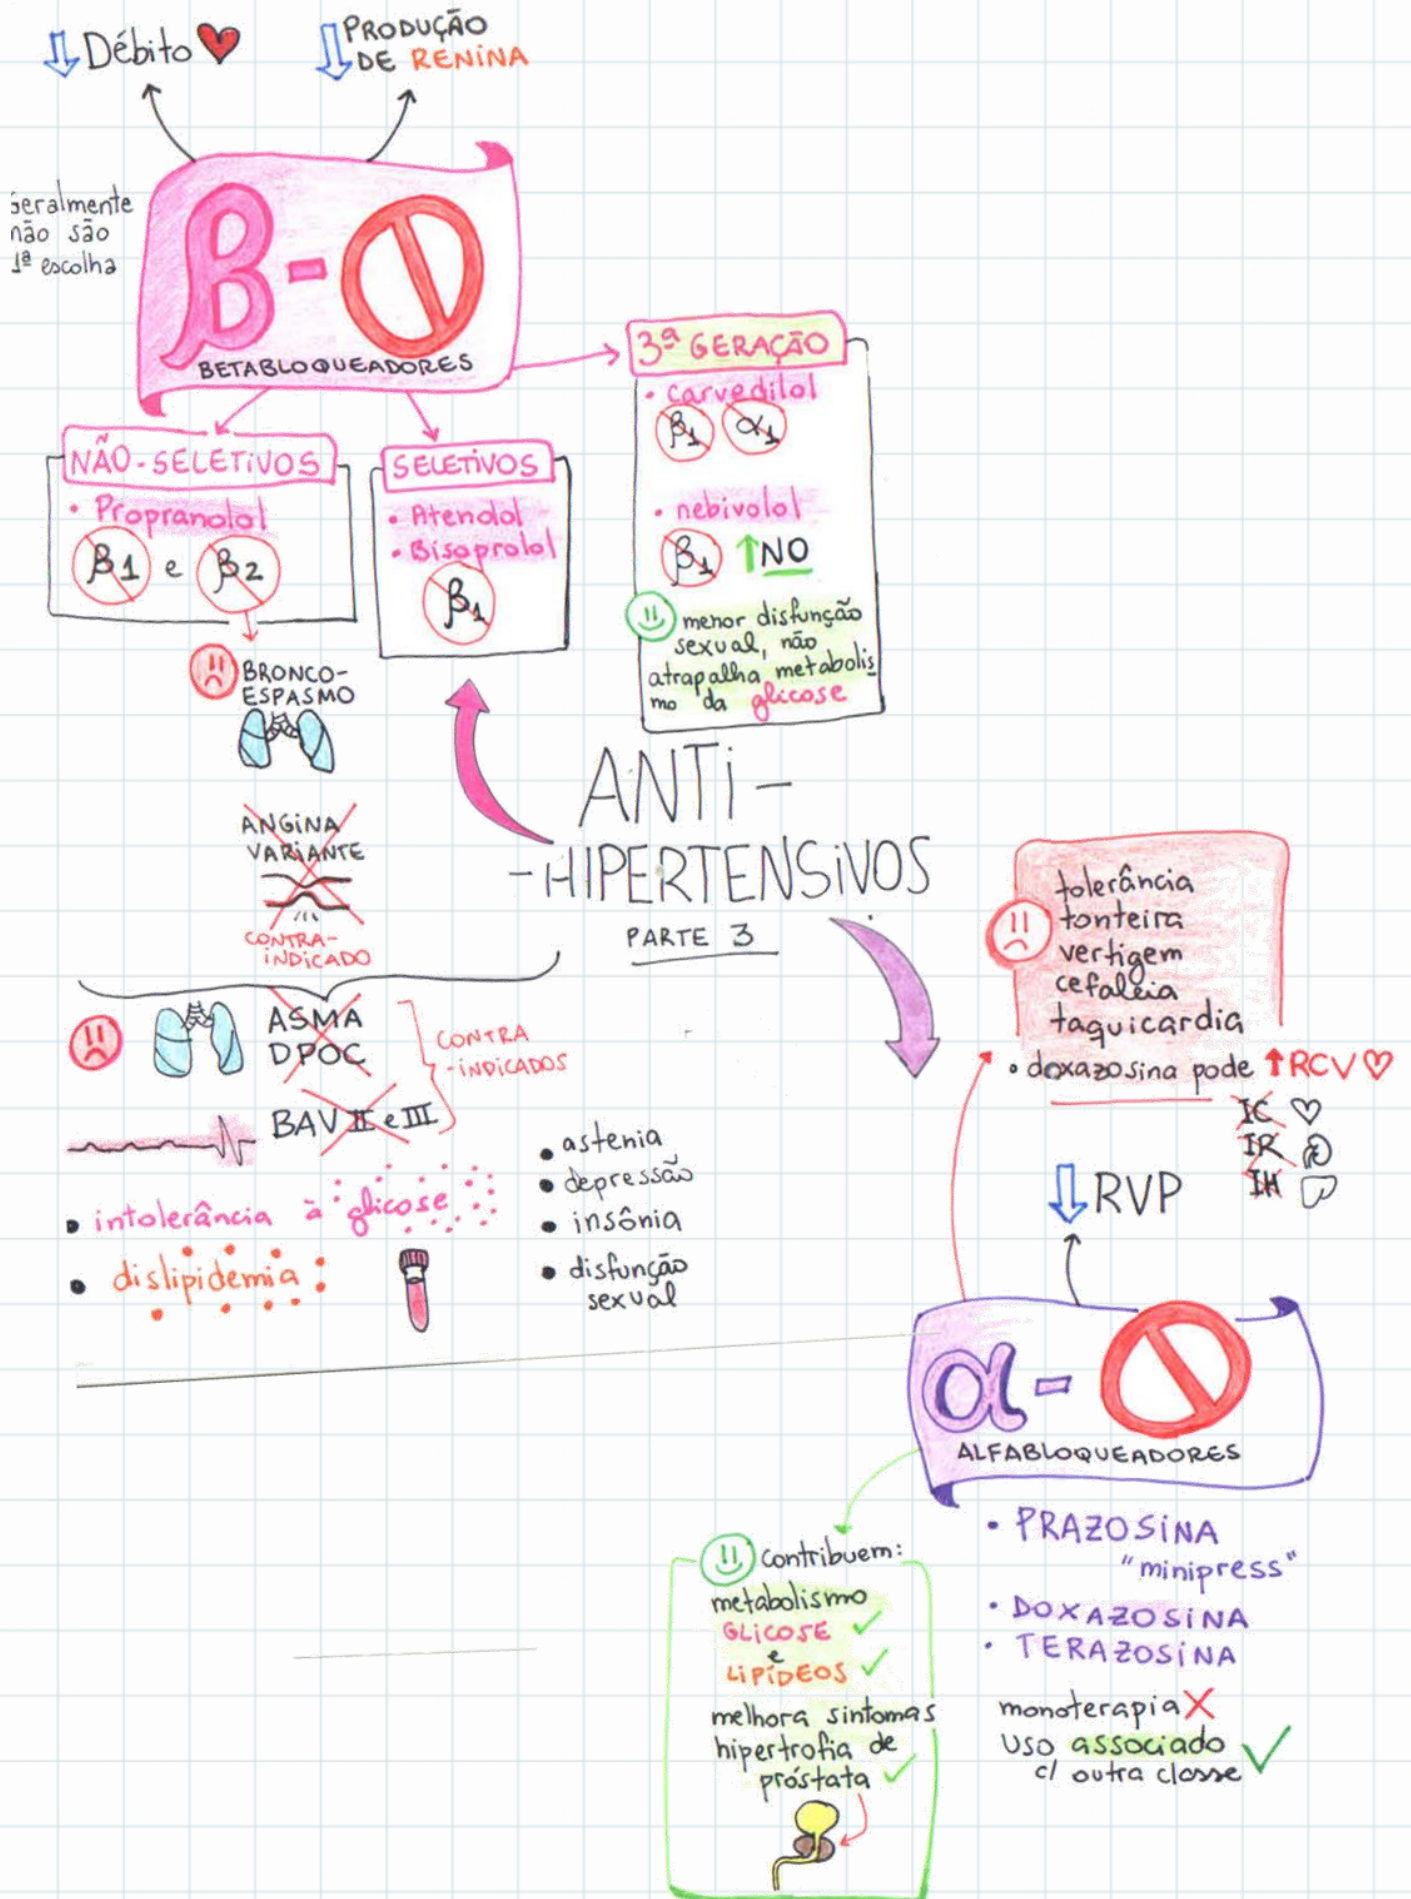 ⇓ Débito ♥
⇓ PRODUÇÃO
DE RENINA
geralmente
não são
1ª escolha
β-
BETABLOQUEADORES
NÃO-SELETIVOS
• Propranolol
β1 e β2
BRONCO-
ESPASMO
ANGINA
VARIANTE
CONTRA-
INDICADO
SELETIVOS
• Atenolol
• Bisoprolol
β1
3ª GERAÇÃO
• carvedilol
β1 α1
• nebivolol
β1 ↑NO
menor disfunção
sexual, não
atrapalha metabolis
mo da glicose
ANTi-
-HIPERTENSiVOS
PARTE 3
ASMA
DPOC
BAV II e III
CONTRA
-iNDiCADOS
• intolerância à glicose
• dislipidemia
• astenia
• depressão
• insônia
• disfunção
sexual
tolerância
tonteira
vertigem
cefaléia
taquicardia
• doxazosina pode ↑RCV ♡
IC
IR
IH
⇓RVP
α-
ALFABLOQUEADORES
• PRAZOSiNA
"minipress"
• DOXAZOSiNA
• TERAZOSiNA
monoterapia X
uso associado ✓
c/ outra classe
contribuem:
metabolismo
GLiCOSE ✓
e
LiPÍDEOS ✓
melhora sintomas
hipertrofia de
próstata ✓